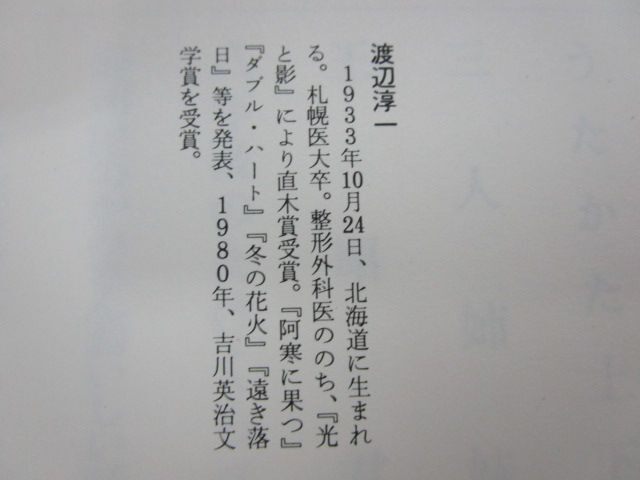 渡辺淳一
1933年10月24日、北海道に生まれ
る。札幌医大卒。整形外科医ののち、『光
と影』により直木賞受賞。『阿寒に果つ』
『ダブル・ハート』『冬の花火』『遠き落
日』等を発表、1980年、吉川英治文
学賞を受賞。